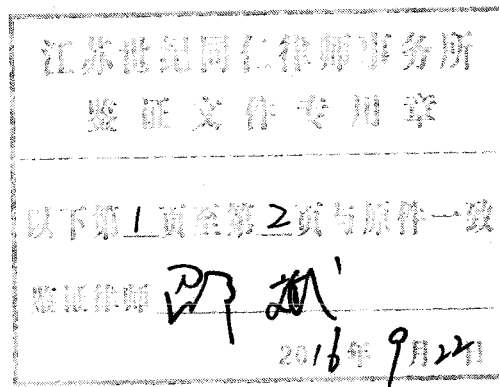 江苏世纪同仁律师事务所
鉴证文件专用章
以下第1页至第2页与原件一致
鉴证律师
2016年9月22日